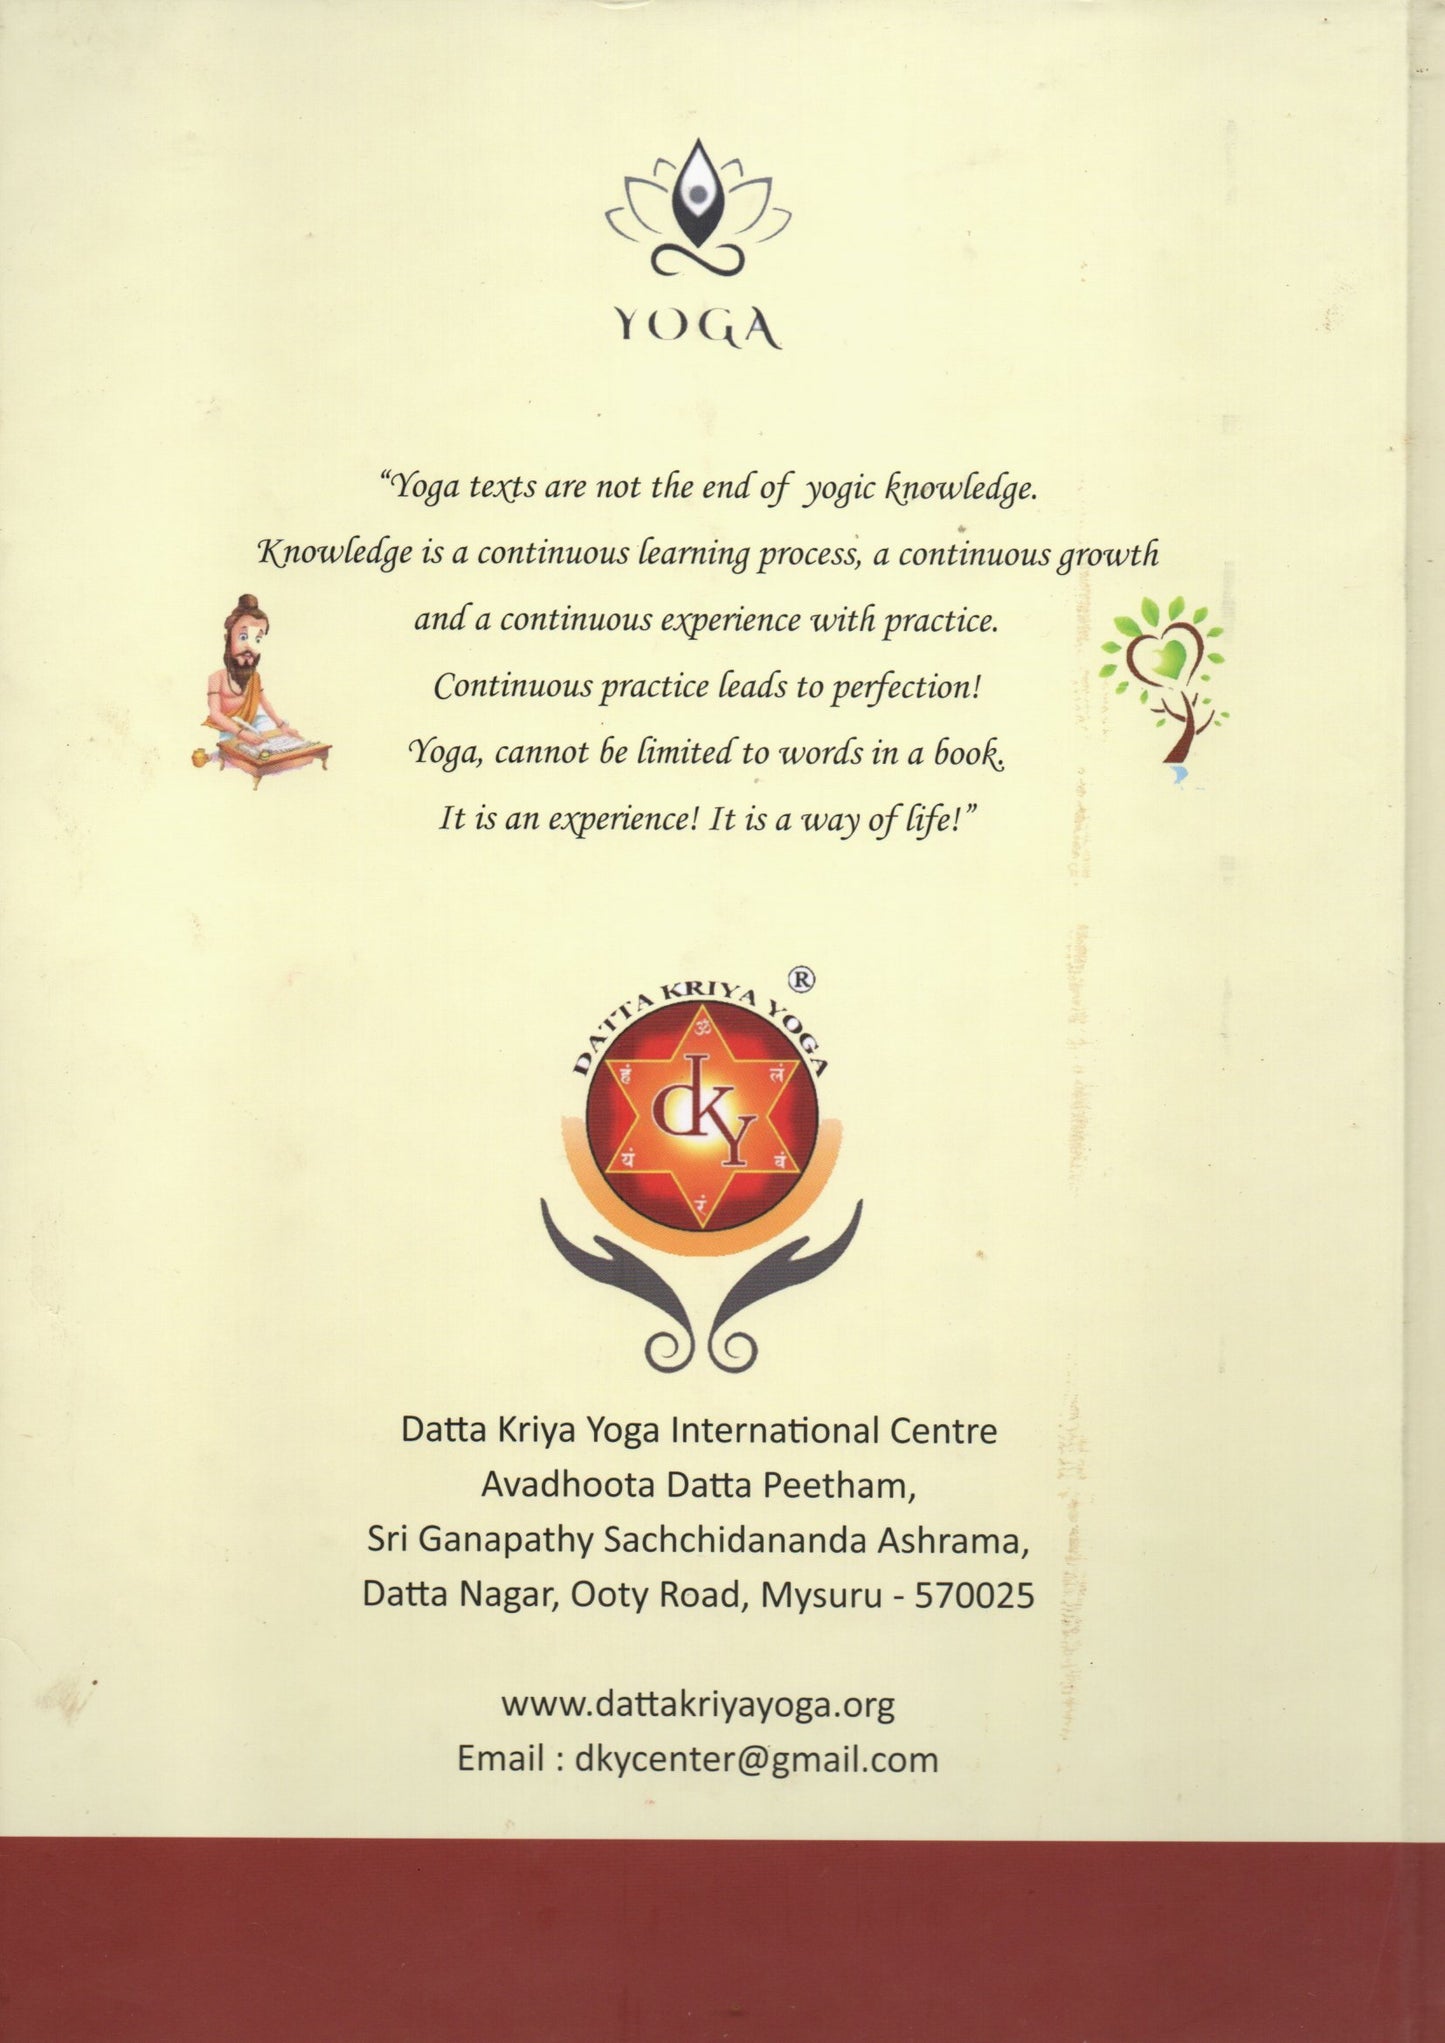 YOGA
“Yoga texts are not the end of yogic knowledge.
Knowledge is a continuous learning process, a continuous growth
and a continuous experience with practice.
Continuous practice leads to perfection!
Yoga, cannot be limited to words in a book.
It is an experience! It is a way of life!”
DATTA KRIYA YOGA ®
ॐ
हं लं
dKY
यं वं
रं
Datta Kriya Yoga International Centre
Avadhoota Datta Peetham,
Sri Ganapathy Sachchidananda Ashrama,
Datta Nagar, Ooty Road, Mysuru - 570025
www.dattakriyayoga.org
Email : dkycenter@gmail.com